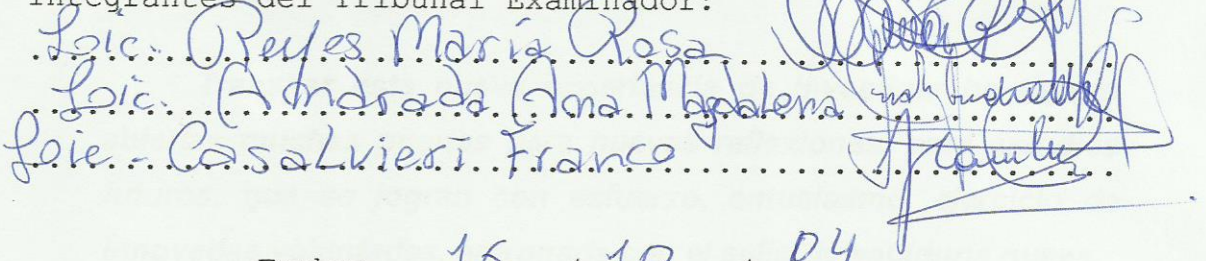 Integrantes del Tribunal Examinador:
Loic. Reyes María Rosa
Loic. Andrada Ana Magdalena
Loie - CasaLvieri Franco
16 10 04